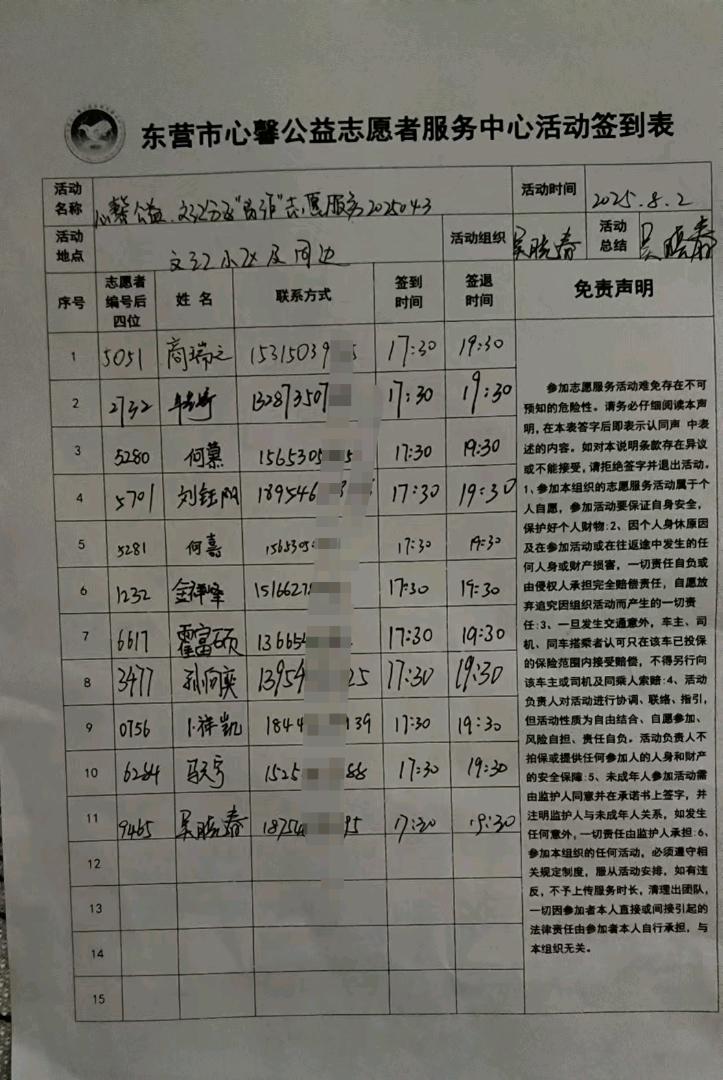 东营市心馨公益志愿者服务中心活动签到表
活动名称 心馨公益 志愿服务20250413 活动时间 2025.8.2
活动地点 文汇小区及周边 活动组织 吴晓春 活动总结 吴晓春
序号 志愿者编号后四位 姓名 联系方式 签到时间 签退时间 免责声明
1 5051 商瑞之 15315039 5 17:30 19:30
2 2732 13287350 17:30 19:30
3 5280 何慕 1565305 5 17:30 19:30
4 5701 刘钰阳 189546 17:30 19:30
5 5281 何嘉 1565305 17:30 19:30
6 1232 金祥峰 1516627 17:30 19:30
7 6617 霍富硕 136654 17:30 19:30
8 3477 孙向奕 13954 25 17:30 19:30
9 0756 卜祥凯 1844 139 17:30 19:30
10 6284 马天宇 1525 88 17:30 19:30
11 9465 吴晓春 18754 95 17:30 19:30
12
13
14
15
参加志愿服务活动难免存在不可
预知的危险性。请务必仔细阅读本声
明,在本表签字后即表示认同声 中表
述的内容。如对本说明条款存在异议
或不能接受,请拒绝签字并退出活动。
1、参加本组织的志愿服务活动属于个
人自愿,参加活动要保证自身安全,
保护好个人财物:2、因个人身休原因
及在参加活动或在往返途中发生的任
何人身或财产损害,一切责任自负或
由侵权人承担完全赔偿责任,自愿放
弃追究因组织活动而产生的一切责
任:3、一旦发生交通意外,车主、司
机、同车搭乘者认可只在该车已投保
的保险范围内接受赔偿,不得另行向
该车主或司机及同乘人索赔:4、活动
负责人对活动进行协调、联络、指引,
但活动性质为自由结合、自愿参加、
风险自担、责任自负。活动负责人不
担保或提供任何参加人的人身和财产
的安全保障:5、未成年人参加活动需
由监护人同意并在承诺书上签字,并
注明监护人与未成年人关系,如发生
任何意外,一切责任由监护人承担:6、
参加本组织的任何活动,必须遵守相
关规定制度,服从活动安排,如有违
反,不予上传服务时长,清理出团队,
一切因参加者本人直接或间接引起的
法律责任由参加者本人自行承担,与
本组织无关。